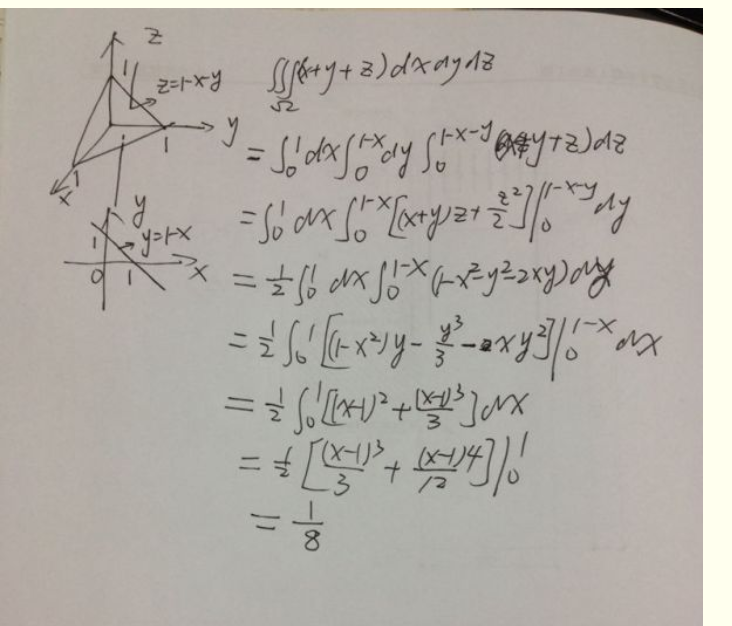 z
1
z=1-x-y
y
1
1
x
y
1
y=1-x
0
1
x
∭_Ω (x+y+z)dxdydz
=∫₀¹dx∫₀^{1-x}dy∫₀^{1-x-y}(x+y+z)dz
=∫₀¹dx∫₀^{1-x}[(x+y)z+z²/2]|₀^{1-x-y}dy
=½∫₀¹dx∫₀^{1-x}(1-x²-y²-2xy)dy
=½∫₀¹[(1-x²)y-y³/3-xy²]|₀^{1-x}dx
=½∫₀¹[(x-1)²+(x-1)³/3]dx
=½[(x-1)³/3+(x-1)4/12]|₀¹
=1/8